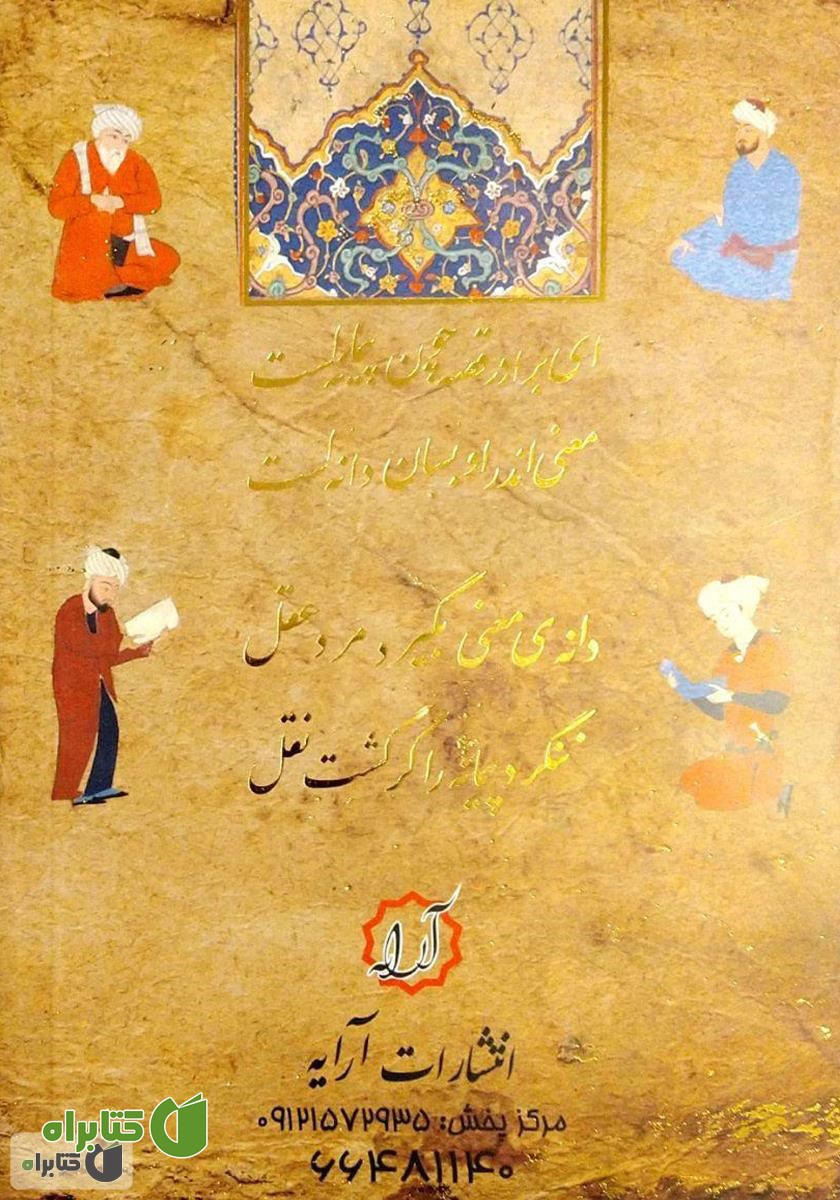 ای برادر قصه چون پیمانه است
معنی اندر او بسان دانه است
دانه‌ی معنی بگیرد مرد عقل
ننگرد پیمانه را گر گشت نقل
آرایه
انتشارات آرایه
مرکز پخش: ۰۹۱۲۱۵۷۲۹۳۵
۶۶۴۸۱۱۴۰
کتابراه
کتابراه